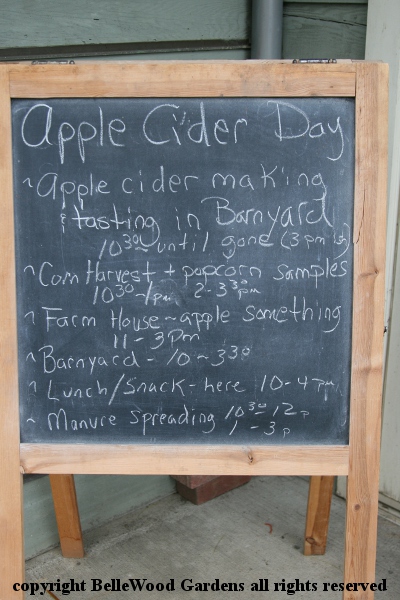 Apple Cider Day
~ Apple cider making
& tasting in Barnyard
10³⁰ until gone (3pm ish)
~ Corn Harvest + popcorn samples
10³⁰-1pm 2-3³⁰pm
~ Farm House ~ apple something
11-3pm
~ Barnyard - 10 - 3³⁰
~ Lunch/Snack - here 10-4pm
~ Manure Spreading 10³⁰-12p
1-3p
copyright BelleWood Gardens all rights reserved